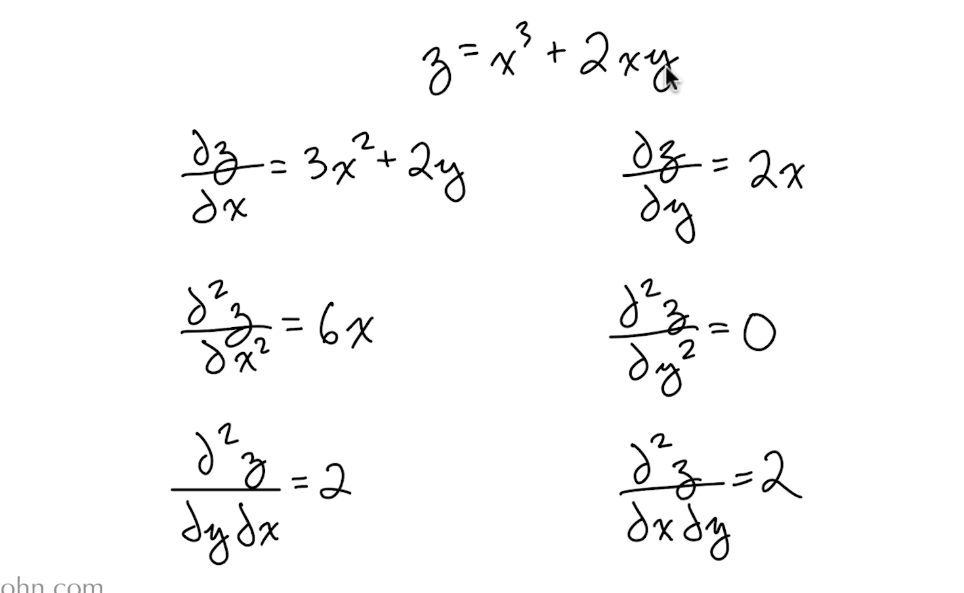 z = x³ + 2xy
∂z/∂x = 3x² + 2y
∂z/∂y = 2x
∂²z/∂x² = 6x
∂²z/∂y² = 0
∂²z/∂y∂x = 2
∂²z/∂x∂y = 2
ohn.com